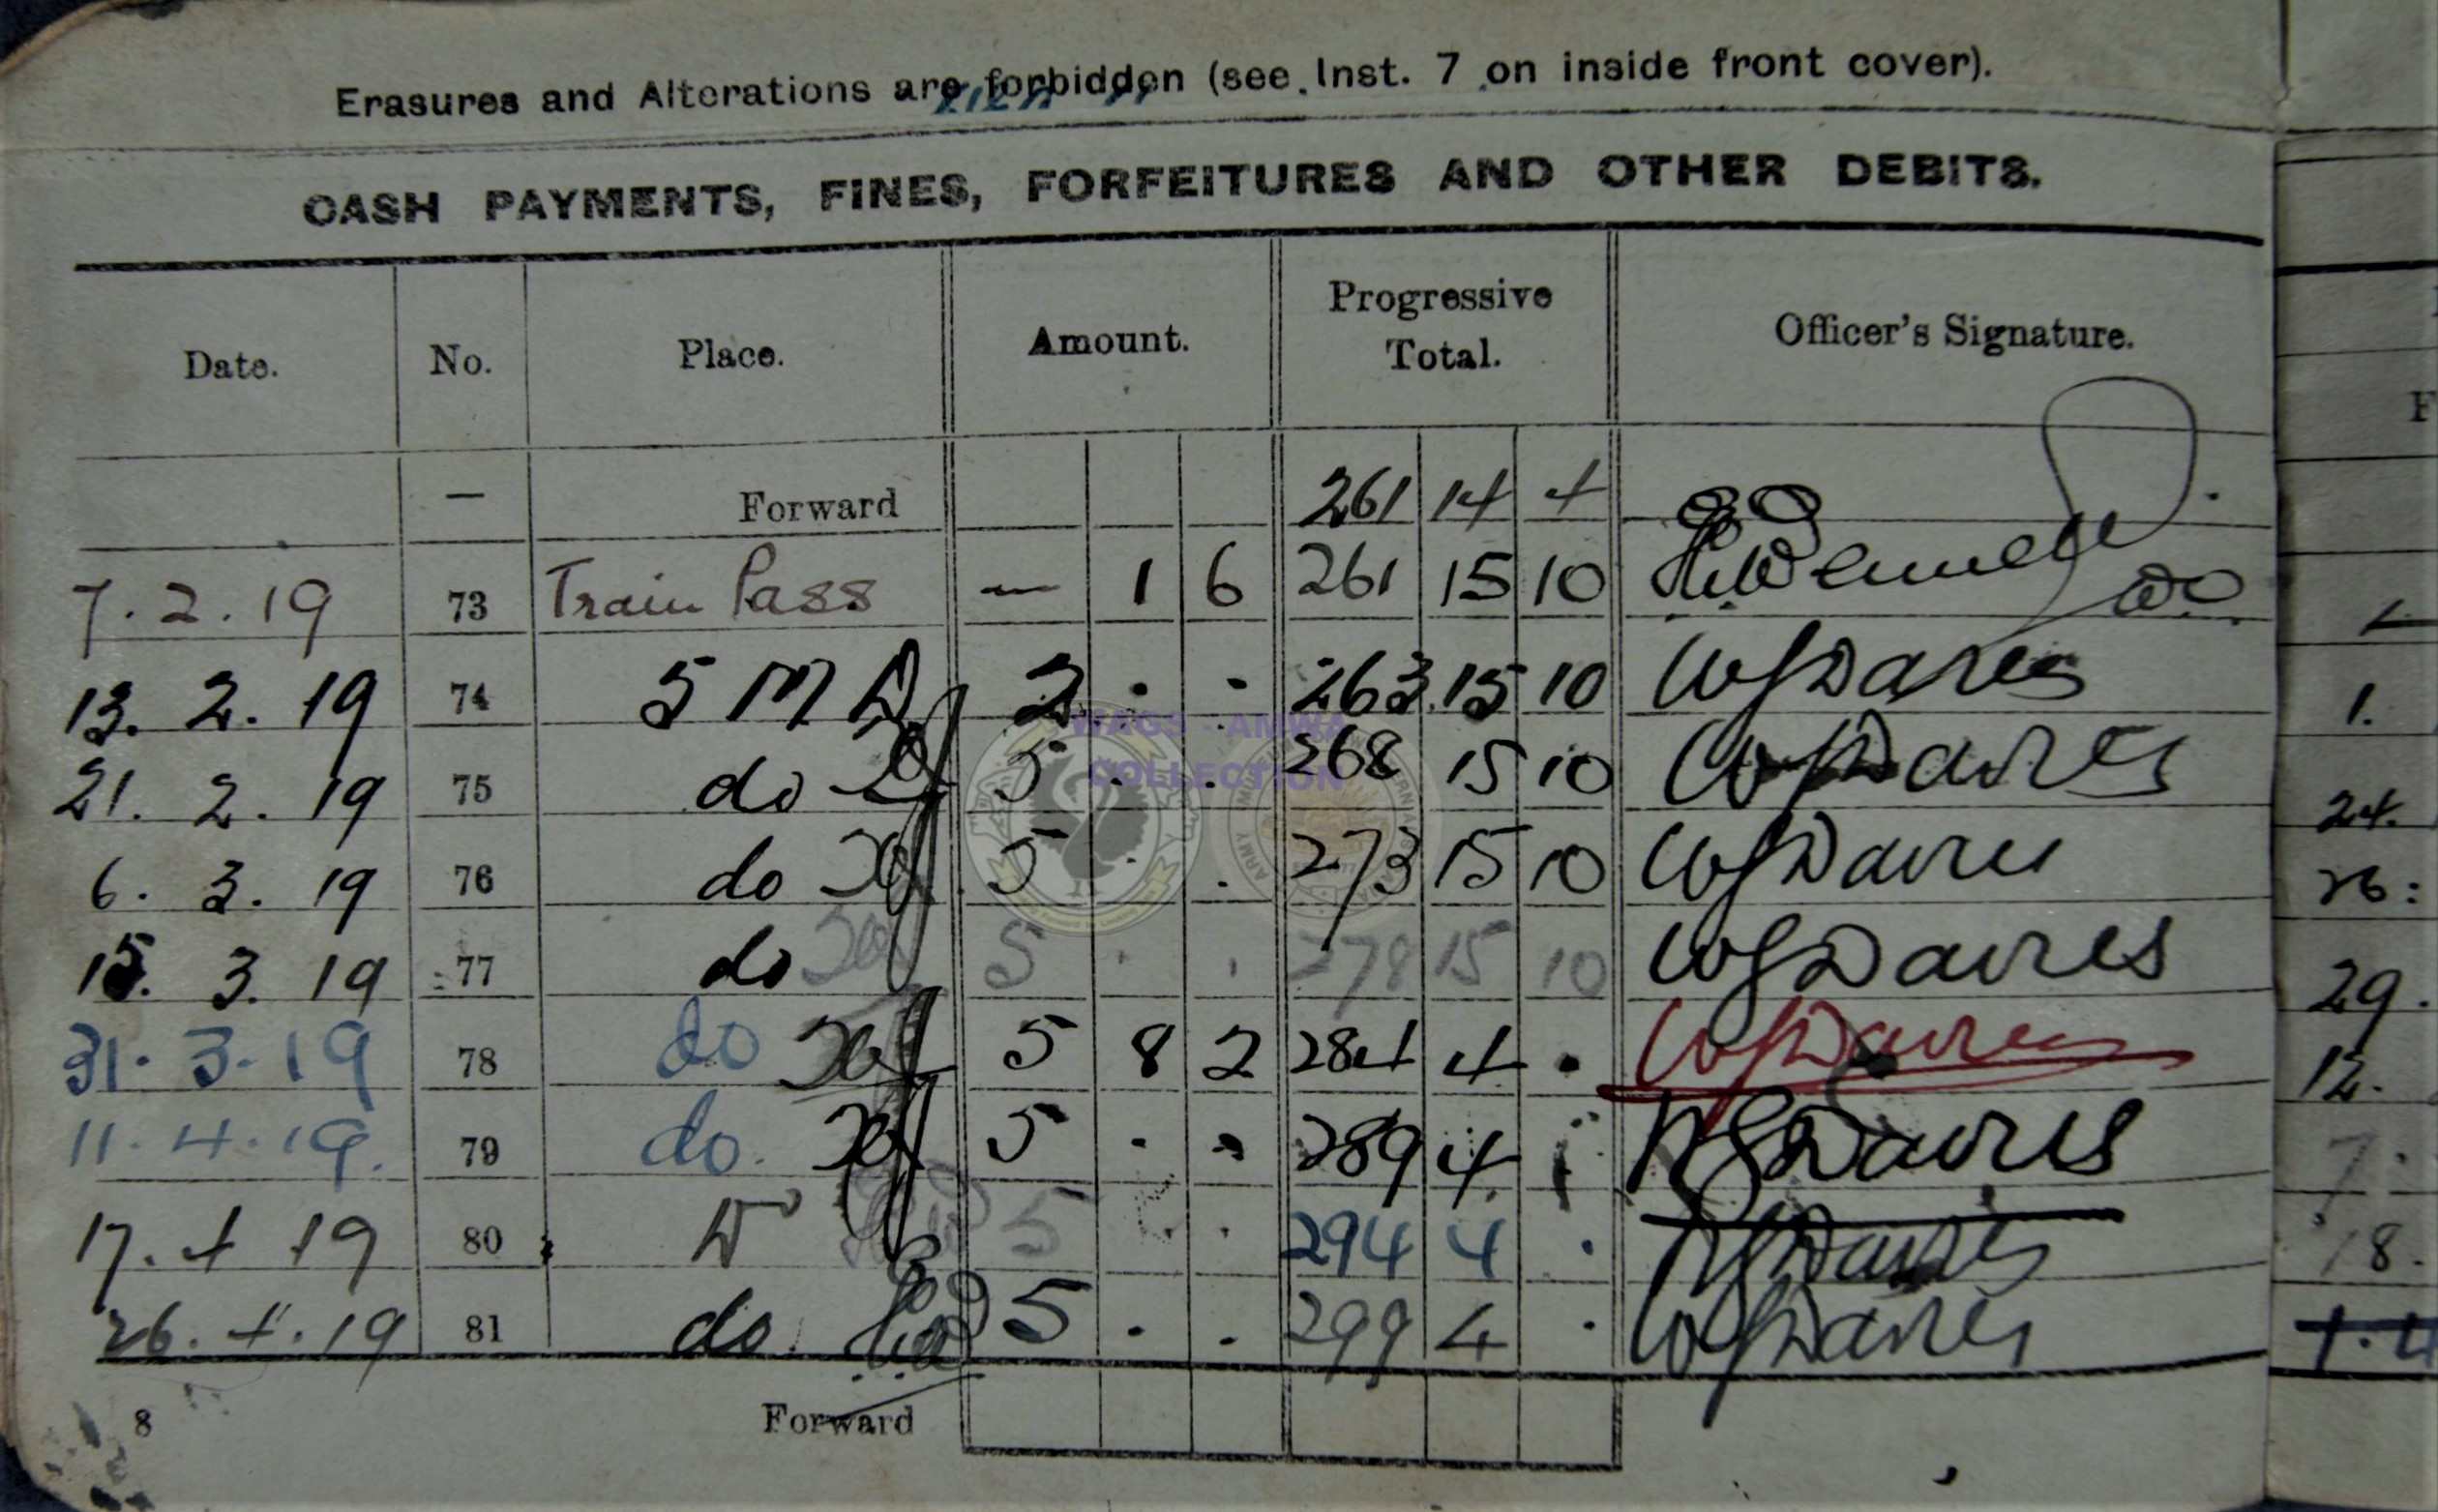 Erasures and Alterations are forbidden (see Inst. 7 on inside front cover).
CASH PAYMENTS, FINES, FORFEITURES AND OTHER DEBITS.
Date. No. Place. Amount. Progressive Total. Officer's Signature.
— Forward 261 14 4
7.2.19 73 Train Pass — 1 6 261 15 10
13. 2. 19 74 5 M D 2 . . 263 15 10 WJDavies
WAGS - AMWA
COLLECTION
21. 2. 19 75 do 5 . . 268 15 10 WJDavies
6. 3. 19 76 do 5 . . 273 15 10 WJDavies
15. 3. 19 77 do 5 . . 278 15 10 WJDavies
31. 3. 19 78 do 5 8 2 284 4 . WJDavies
11. 4. 19. 79 do. 5 . . 289 4 WJDavies
17. 4 19 80 5 . . 294 4 . WJDavies
26. 4. 19 81 do. 5 . . 299 4 . WJDavies
8 Forward
1.
24.
26:
29.
12.
7.
18.